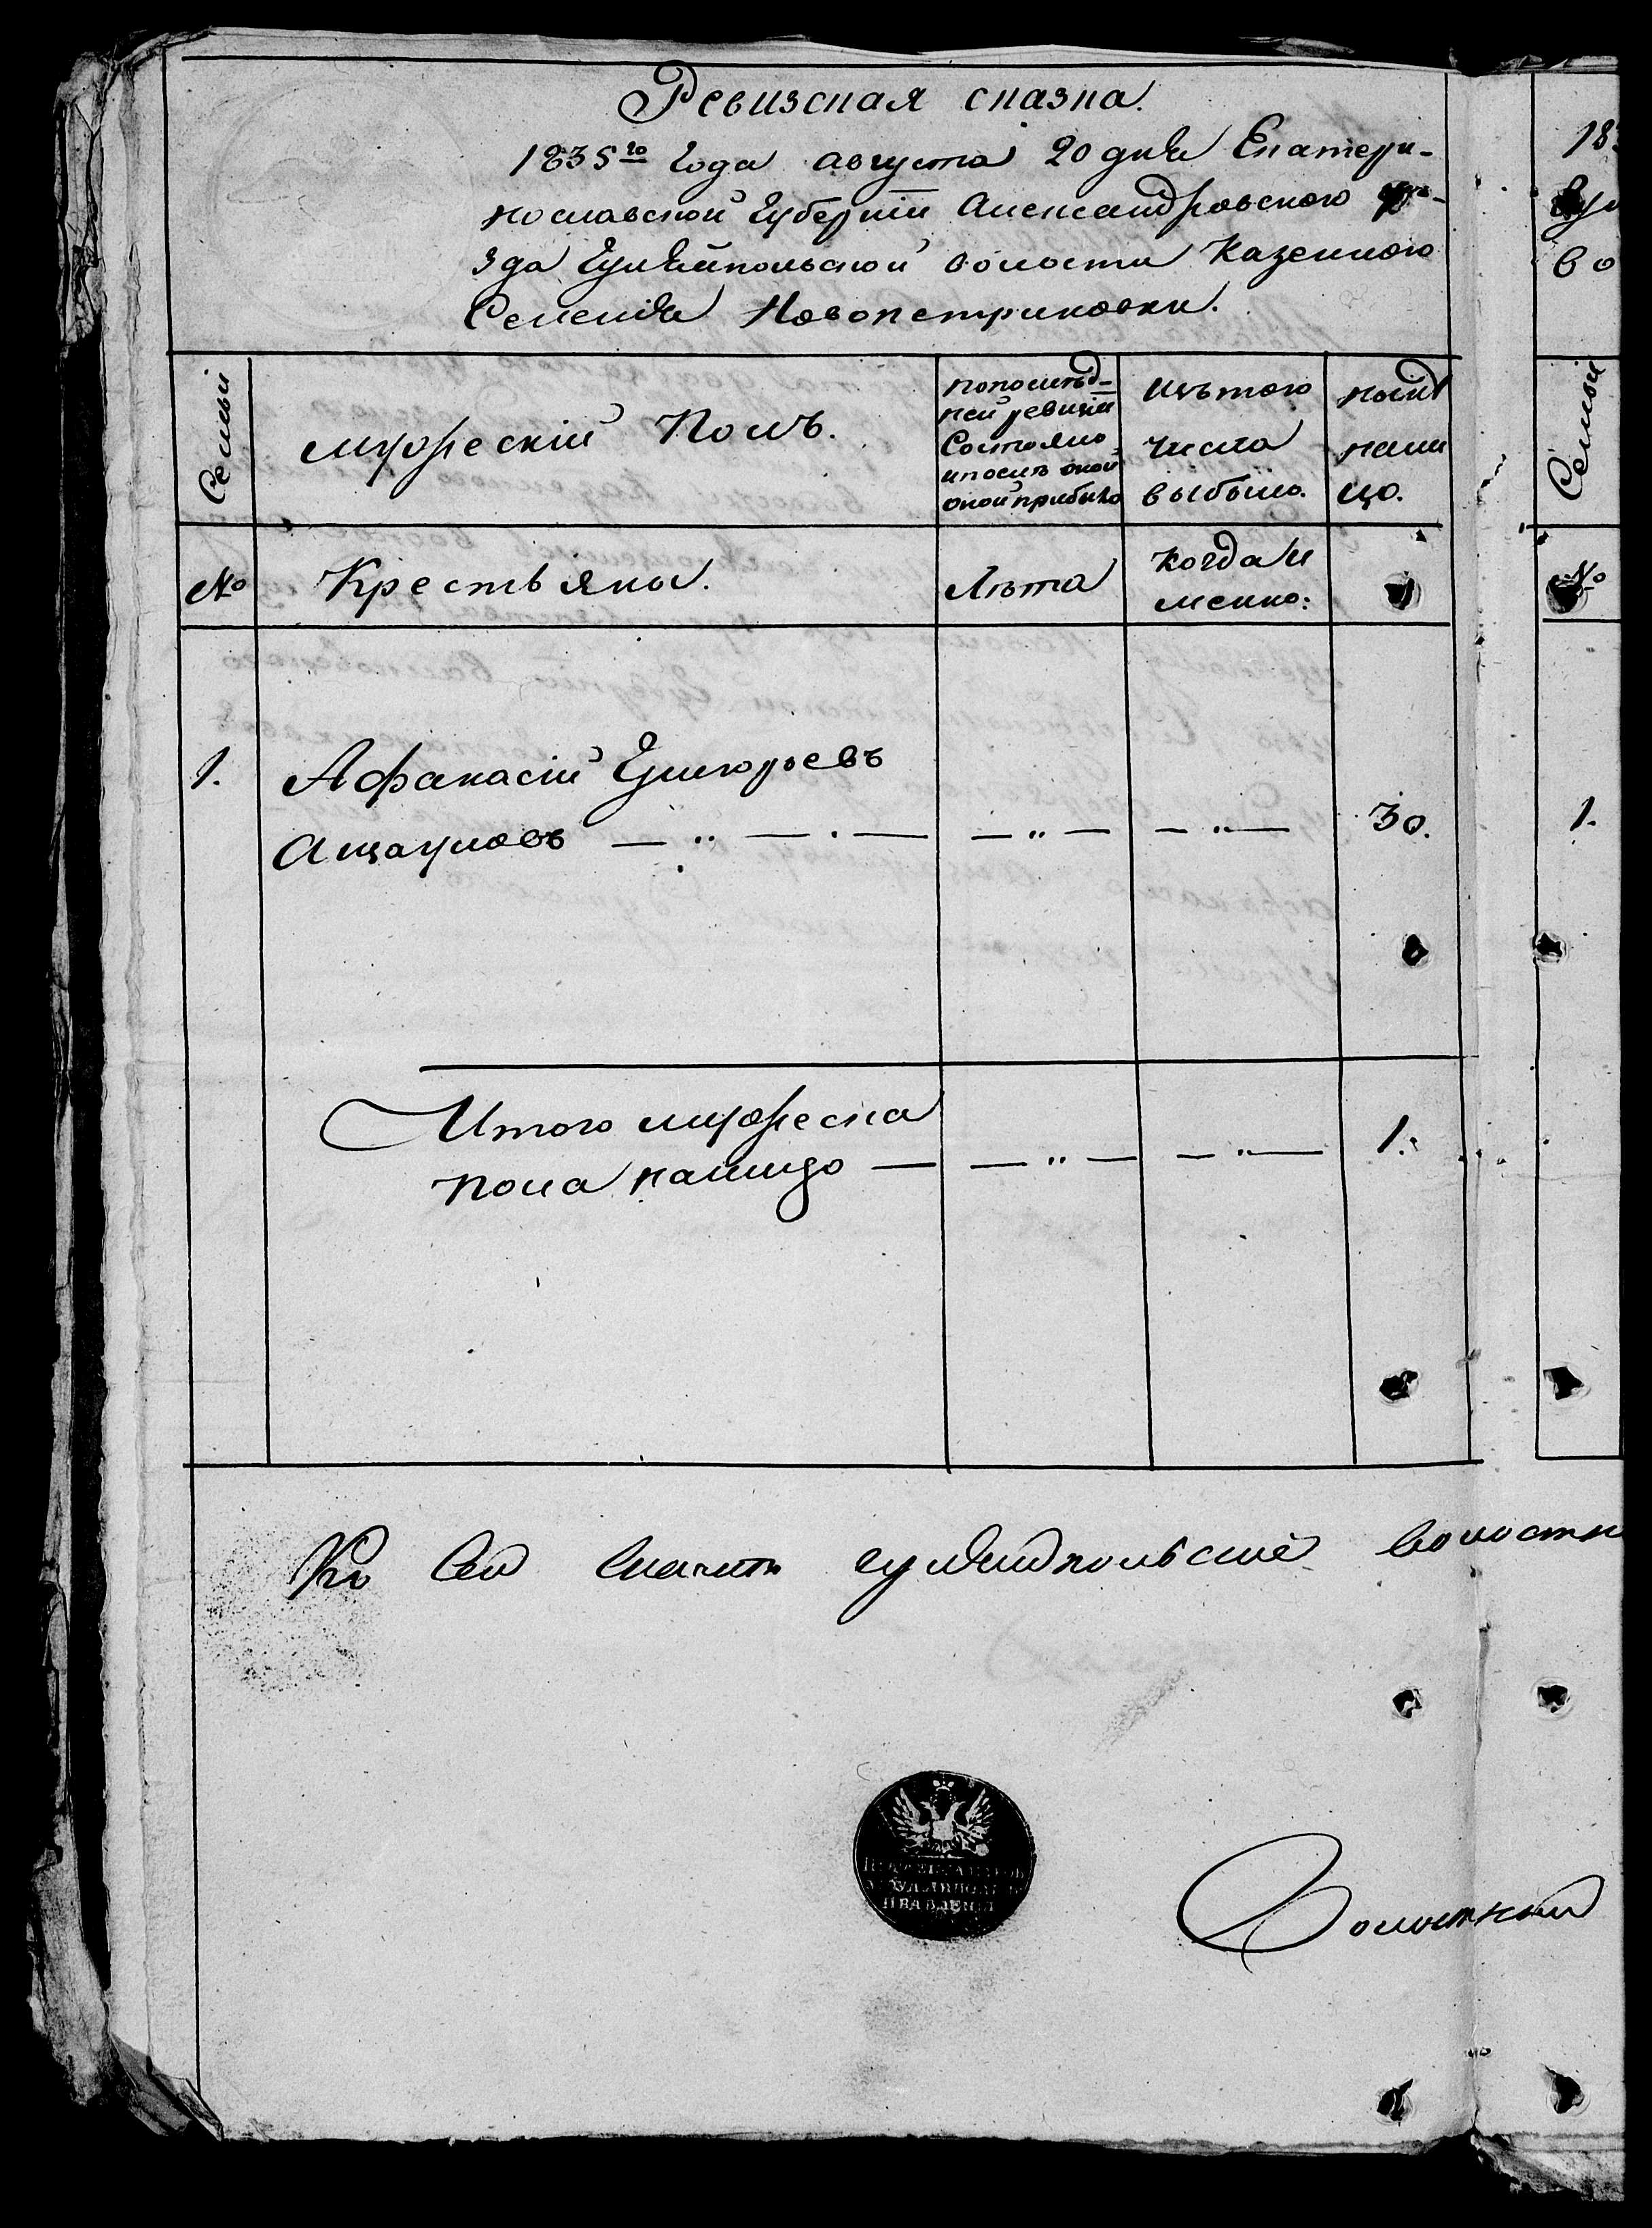 Ревизская сказка.
1835го Года августа 20 дня Екатери-
нославской Губерніи Александровского уѣ-
зда Гуляйпольской волости Казенного
Селенія Новопетриковки.
Семьи
мужескій Полъ.
попослѣд-
ней ревизіи
Состояло
ипослѣ оной
оной прибыло
Изътого
числа
выбыло.
нынѣ
нали
цо.
№
Крестьяна.
Лѣта
когда И
менно:
1.
Афанасій Григорьевъ
Ащауловъ — „ — . — — „ — — „ — 30.
Итого мужеска
пола налицо — — „ — — „ — 1.
Къ Сей гуляйпольскіе волостн
Волостный
правленія
183
во
Семьи
№
1.